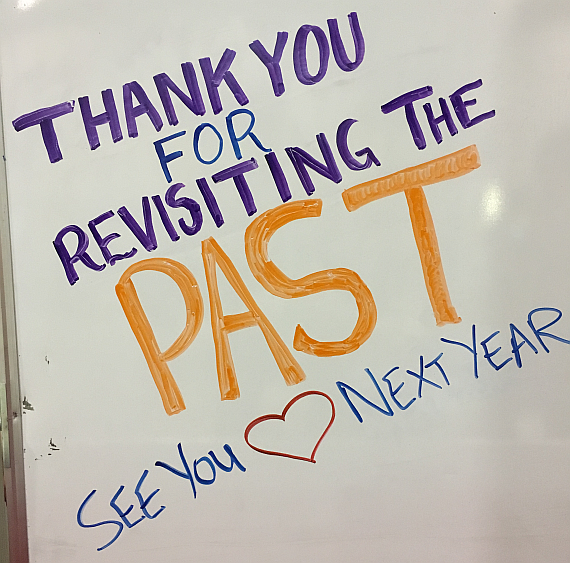 THANK YOU
FOR
REVISITING THE
PAST
SEE YOU NEXT YEAR